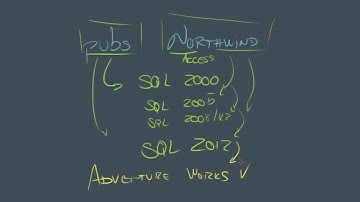 pubs NORTHWIND
ACCESS
SQL 2000
SQL 2005
SQL 2008/R2
SQL 2012
ADVENTURE WORKS